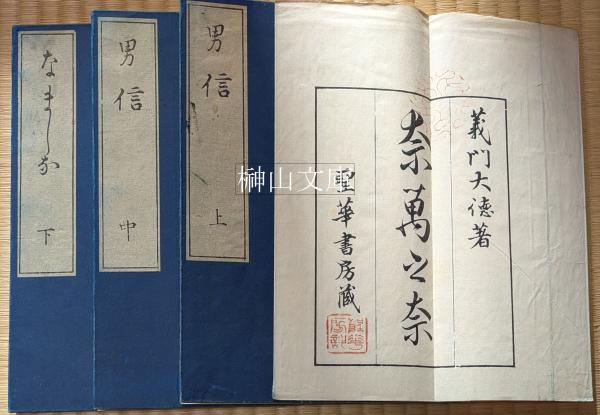 義門大徳著
奈萬之奈
聖華書房蔵
男信 上
男信 中
なましな 下
榊山文庫